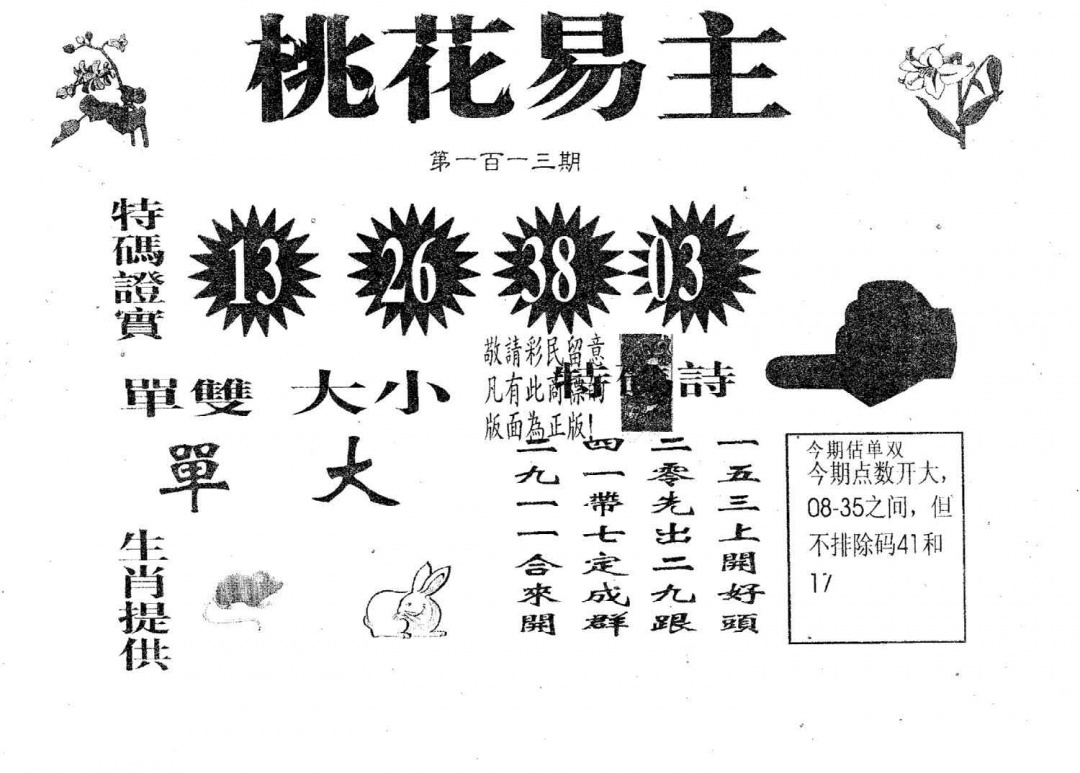 桃花易主
第一百一三期
特碼證實
13 26 38 03
敬請彩民留意
凡有此商標的
版面為正版!
特碼詩
單雙 大小
單 大
一五三上開好頭
二零先出二九跟
四一帶七定成群
二九一一合來開
今期估单双
今期点数开大,
08-35之间,但
不排除码41和
17
生肖提供